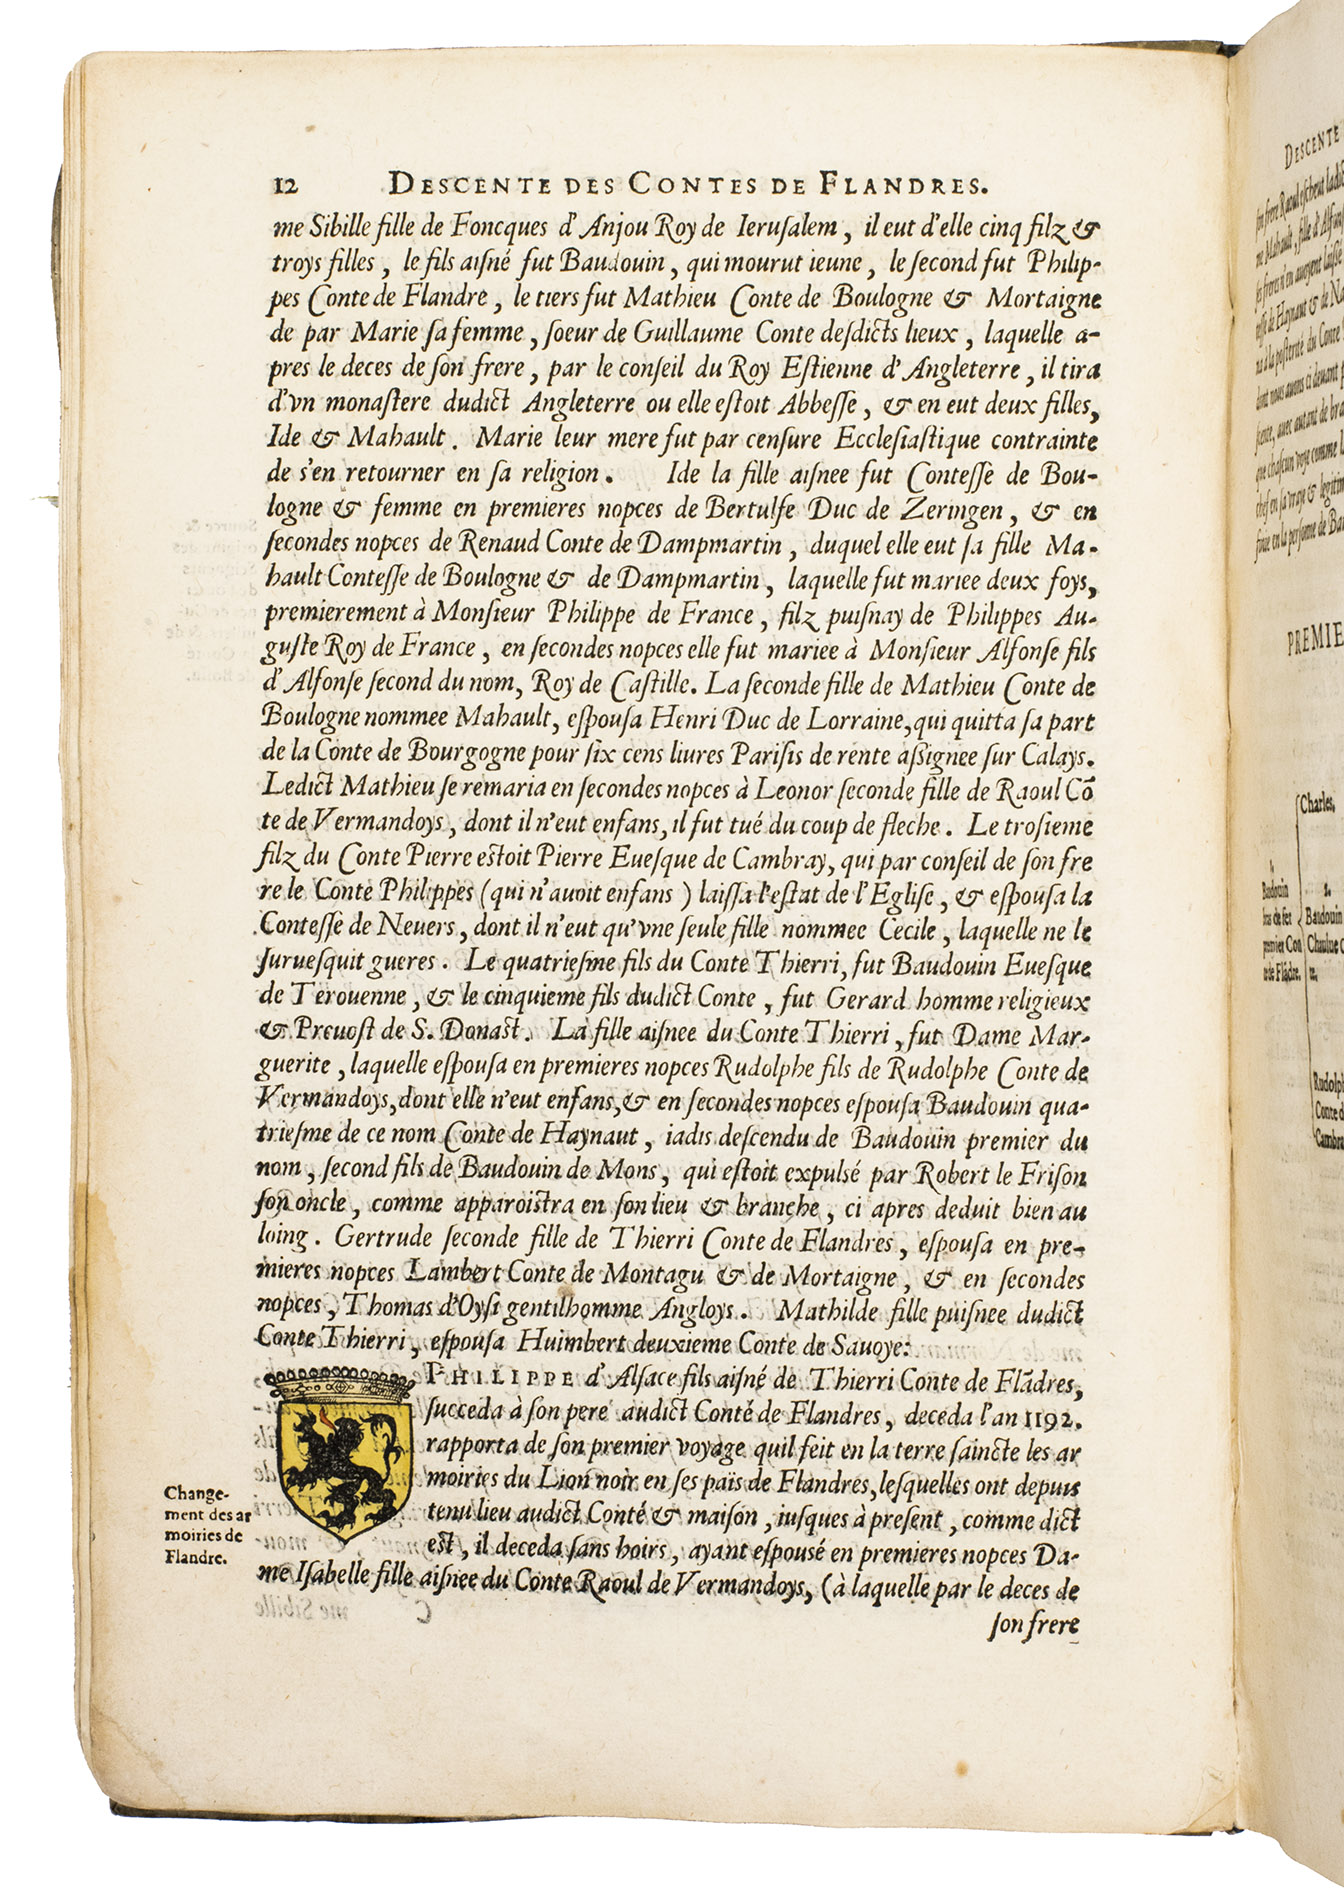 12 DESCENTE DES CONTES DE FLANDRES.
me Sibille fille de Foncques d'Anjou Roy de Ierusalem, il eut d'elle cinq filz &
troys filles, le fils aisné fut Baudouin, qui mourut ieune, le second fut Philip-
pes Conte de Flandre, le tiers fut Mathieu Conte de Boulogne & Mortaigne
de par Marie sa femme, soeur de Guillaume Conte desdicts lieux, laquelle a-
pres le deces de son frere, par le conseil du Roy Estienne d'Angleterre, il tira
d'vn monastere dudict Angleterre ou elle estoit Abbesse, & en eut deux filles,
Ide & Mahault. Marie leur mere fut par censure Ecclesiastique contrainte
de s'en retourner en sa religion. Ide la fille aisnee fut Contesse de Bou-
logne & femme en premieres nopces de Bertulfe Duc de Zeringen, & en
secondes nopces de Renaud Conte de Dampmartin, duquel elle eut sa fille Ma-
hault Contesse de Boulogne & de Dampmartin, laquelle fut mariee deux foys,
premierement à Monsieur Philippe de France, filz puisnay de Philippes Au-
guste Roy de France, en secondes nopces elle fut mariee à Monsieur Alfonse fils
d'Alfonse second du nom, Roy de Castille. La seconde fille de Mathieu Conte de
Boulogne nommee Mahault, espousa Henri Duc de Lorraine, qui quitta sa part
de la Conte de Bourgogne pour six cens liures Parisis de rente assignee sur Calays.
Ledict Mathieu se remaria en secondes nopces à Leonor seconde fille de Raoul Cō
te de Vermandoys, dont il n'eut enfans, il fut tué du coup de fleche. Le trosieme
filz du Conte Pierre estoit Pierre Euesque de Cambray, qui par conseil de son fre
re le Conte Philippes (qui n'auoit enfans) laissa l'estat de l'Eglise, & espousa la
Contesse de Neuers, dont il n'eut qu'vne seule fille nommee Cecile, laquelle ne le
suruesquit gueres. Le quatriesme fils du Conte Thierri, fut Baudouin Euesque
de Terouenne, & le cinquieme fils dudict Conte, fut Gerard homme religieux
& Preuost de S. Donast. La fille aisnee du Conte Thierri, fut Dame Mar-
guerite, laquelle espousa en premieres nopces Rudolphe fils de Rudolphe Conte de
Vermandoys, dont elle n'eut enfans, & en secondes nopces espousa Baudouin qua-
triesme de ce nom Conte de Haynaut, iadis descendu de Baudouin premier du
nom, second fils de Baudouin de Mons, qui estoit expulsé par Robert le Frison
son oncle, comme apparoistra en son lieu & branche, ci apres deduit bien au
loing. Gertrude seconde fille de Thierri Conte de Flandres, espousa en pre-
mieres nopces Lambert Conte de Montagu & de Mortaigne, & en secondes
nopces, Thomas d'Oysi gentilhomme Angloys. Mathilde fille puisnee dudict
Conte Thierri, espousa Huimbert deuxieme Conte de Sauoye:
PHILIPPE d'Alsace fils aisné de Thierri Conte de Flādres,
succeda à son pere audict Conté de Flandres, deceda l'an 1192.
rapporta de son premier voyage quil feit en la terre saincte les ar
moiries du Lion noir en ses païs de Flandres, lesquelles ont depuis
tenu lieu audict Conté & maison, iusques à present, comme dict
est, il deceda sans hoirs, ayant espousé en premieres nopces Da-
me Isabelle fille aisnee du Conte Raoul de Vermandoys, (à laquelle par le deces de
son frere
Change-
ment des ar
moiries de
Flandre.
DESCENTE
PREMIE
Charles,
Baudouin
bras de fer
premier Con
te de Flādre.
Baudouin
Chaulue C
te.
Rudolph
Conte d
Cambra